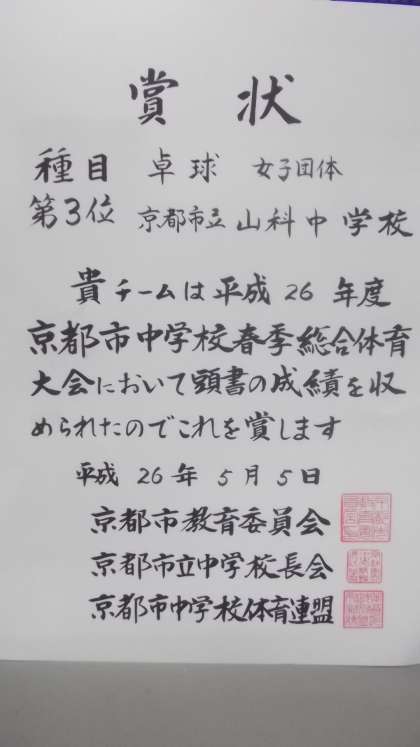 賞状
種目 卓球 女子団体
第3位 京都市立山科中学校
貴チームは平成26年度
京都市中学校春季総合体育
大会において頭書の成績を収
められたのでこれを賞します
平成26年5月5日
京都市教育委員会
京都市立中学校長会
京都市中学校体育連盟